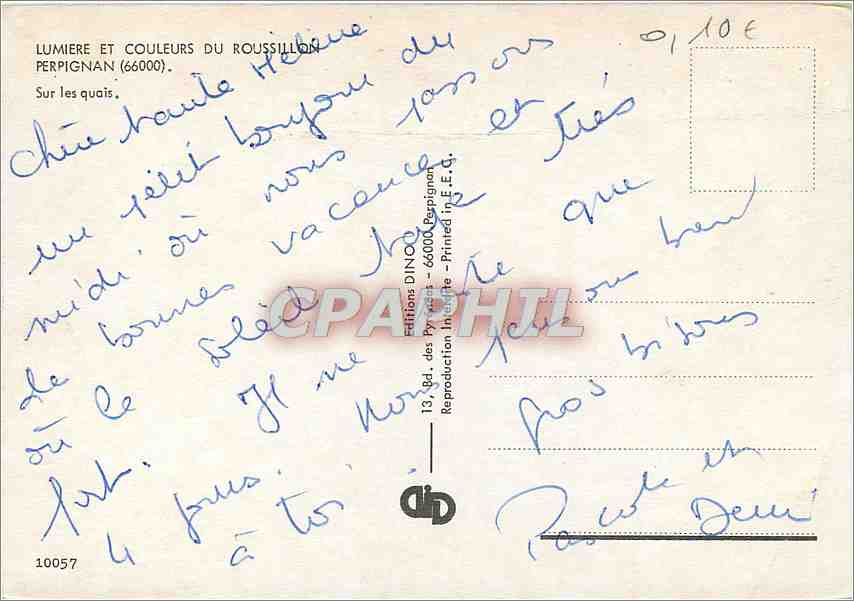 LUMIERE ET COULEURS DU ROUSSILLON
PERPIGNAN (66000).
Sur les quais.
0,10 €
Chère tante Hélène
un petit bonjour du
midi où nous passons
de bonnes vacances et
où le soleil tape très
fort. Il ne reste que
4 jours. Nous pensons bien
à toi.
gros bisous
Pascale et
Denis
Editions DINO
13, Bd. des Pyrénées - 66000 Perpignan
Reproduction Interdite - Printed in E.E.C.
CPAPHIL
10057